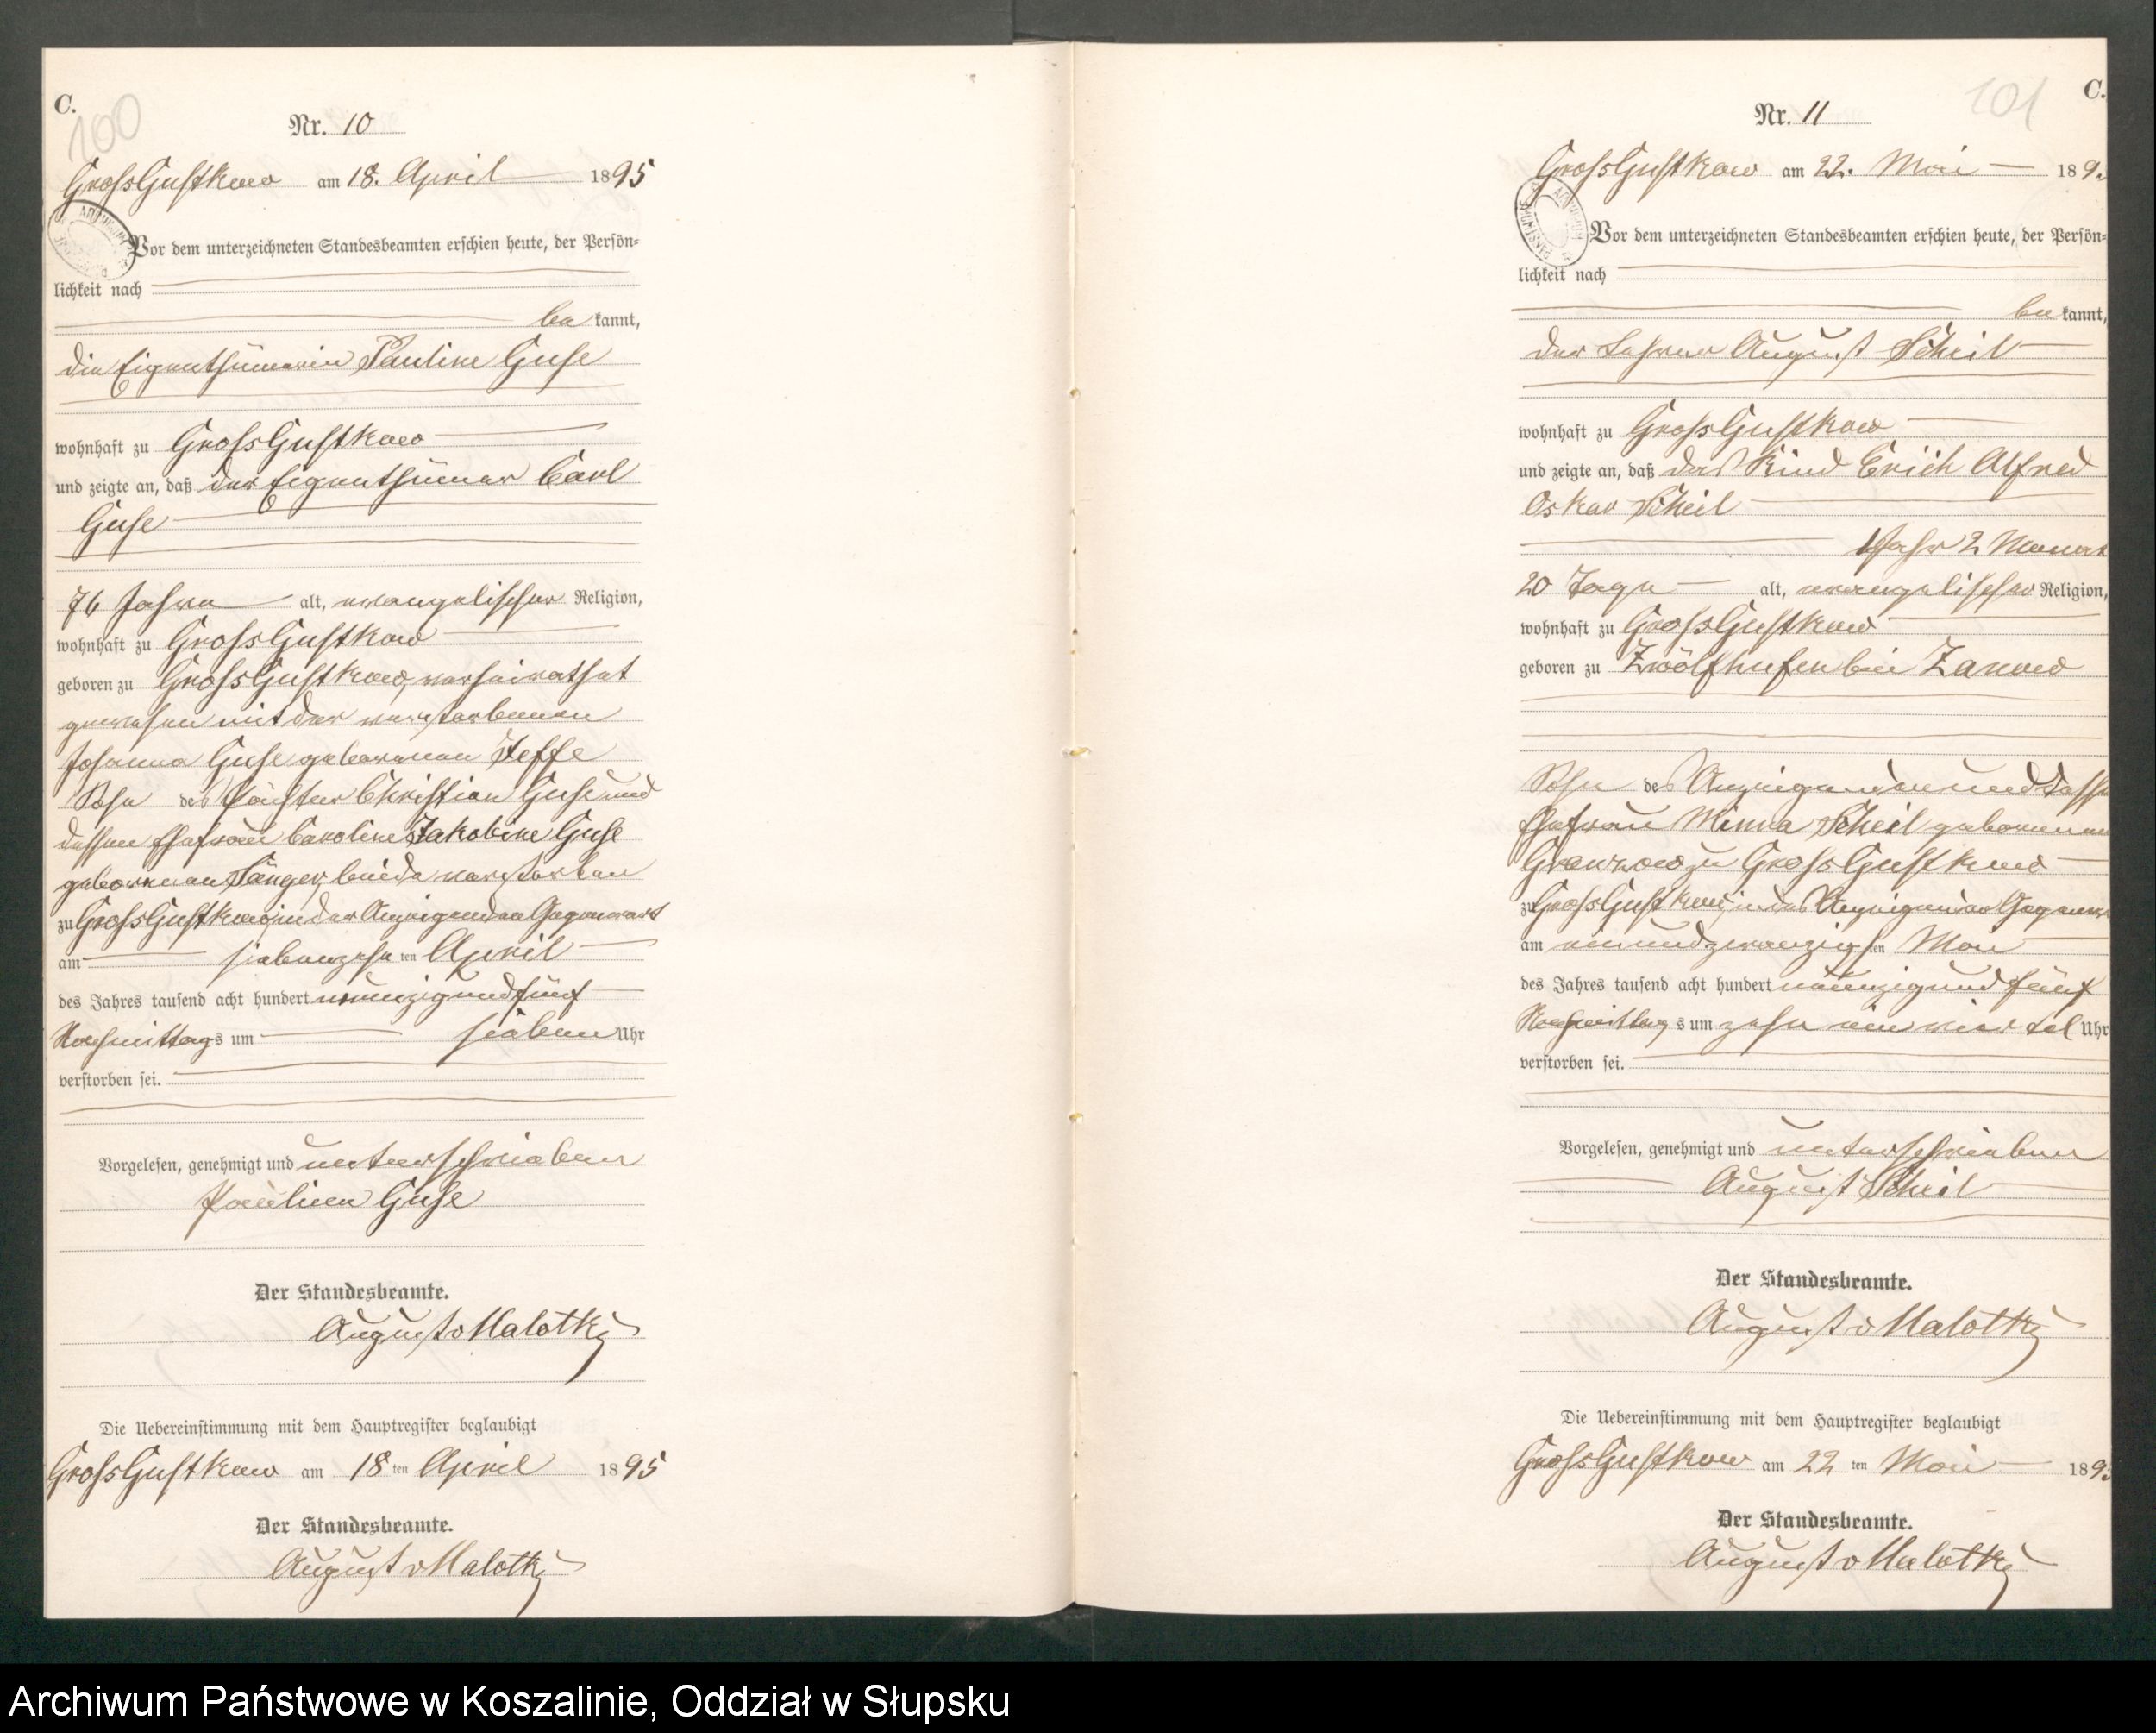 C.
100
Nr. 10
GroßGustkow am 18. April 1895
Vor dem unterzeichneten Standesbeamten erschien heute, der Persön-
lichkeit nach
be kannt,
die Eigenthümerin Pauline Guse
wohnhaft zu GroßGustkow
und zeigte an, daß der Eigenthümer Carl
Guse
76 Jahre alt, evangelischer Religion,
wohnhaft zu GroßGustkow
geboren zu GroßGustkow, verheirathet
gewesen mit der verstorbenen
Johanna Guse geborenen Steffe
Sohn des Pächter Christian Guse und
dessen Ehefrau Caroline Jakobine Guse
geborenen Sänger, beide verstorben
zu GroßGustkow in der Anzeigenden Gegenwart
am siebenzehn ten April
des Jahres tausend acht hundert neunzig und fünf
Nachmittags um sieben Uhr
verstorben sei.
Vorgelesen, genehmigt und unterschrieben
Pauline Guse
Der Standesbeamte.
August v Malottky
Die Uebereinstimmung mit dem Hauptregister beglaubigt
GroßGustkow am 18 ten April 1895
Der Standesbeamte.
August v Malottky
C.
101
Nr. 11
GroßGustkow am 22. Mai 189
Vor dem unterzeichneten Standesbeamten erschien heute, der Persön-
lichkeit nach
be kannt,
der Lehrer August Scheil
wohnhaft zu GroßGustkow
und zeigte an, daß das Kind Erich Alfred
Oskar Scheil
1 Jahr 2 Monat
20 Tage alt, evangelischer Religion,
wohnhaft zu GroßGustkow
geboren zu Zwölfhufen bei Zanow
Sohn des Anzeigenden und dessen
Ehefrau Minna Scheil geborenen
zu GroßGustkow
zu GroßGustkow, in des Anzeigenden Gegenw
am einundzwanzigsten Mai
des Jahres tausend acht hundert neunzig und fünf
Nachmittags um zehn ein viertel Uhr
verstorben sei.
Vorgelesen, genehmigt und unterschrieben
August Scheil
Der Standesbeamte.
August v Malottky
Die Uebereinstimmung mit dem Hauptregister beglaubigt
GroßGustkow am 22 ten Mai 189
Der Standesbeamte.
August v Malottky
Archiwum Państwowe w Koszalinie, Oddział w Słupsku